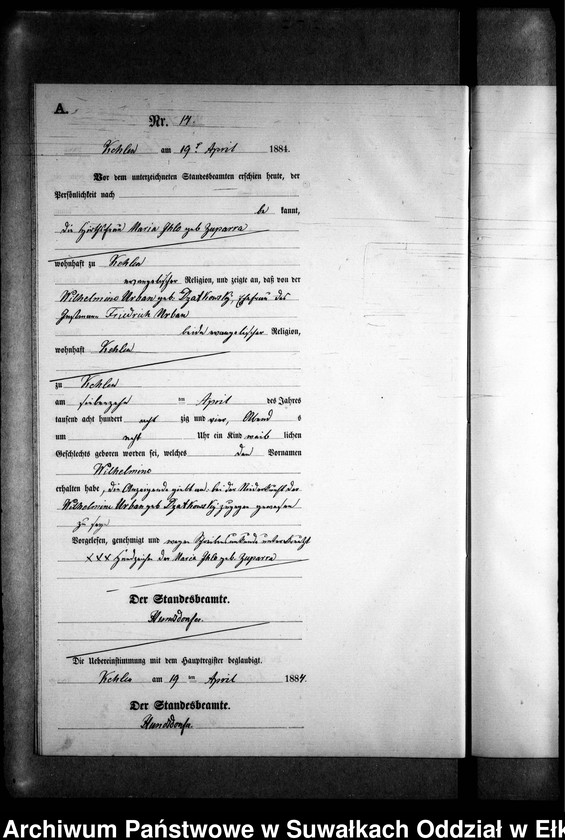 A.
Nr. 14.
Kehlen am 19t April 1884.
Vor dem unterzeichneten Standesbeamten erschien heute, der
Persönlichkeit nach
be kannt,
die Maria geb Zuparra
wohnhaft zu Kehlen
evangelischer Religion, und zeigte an, daß von der
Wilhelmine Urban geb. Dzatkowsky, Ehefrau des
Friedrich Urban
beide evangelischer Religion,
wohnhaft Kehlen
zu Kehlen
am siebzehn ten April des Jahres
tausend acht hundert acht zig und vier, Abend s
um acht Uhr ein Kind weib lichen
Geschlechts geboren worden sei, welches den Vornamen
Wilhelmine
erhalten habe, die Anzeigende giebt an: bei der Niederkunft der
Wilhelmine Urban geb Dzatkowsky zugegen gewesen
zu sein
Vorgelesen, genehmigt und wegen Schreibensunkunde unterkreuzt
XXX Handzeichen der Maria geb. Zuparra
Der Standesbeamte.
Die Uebereinstimmung mit dem Hauptregister beglaubigt.
Kehlen am 19 ten April 1884.
Der Standesbeamte.
Archiwum Państwowe w Suwałkach Oddział w Ełk